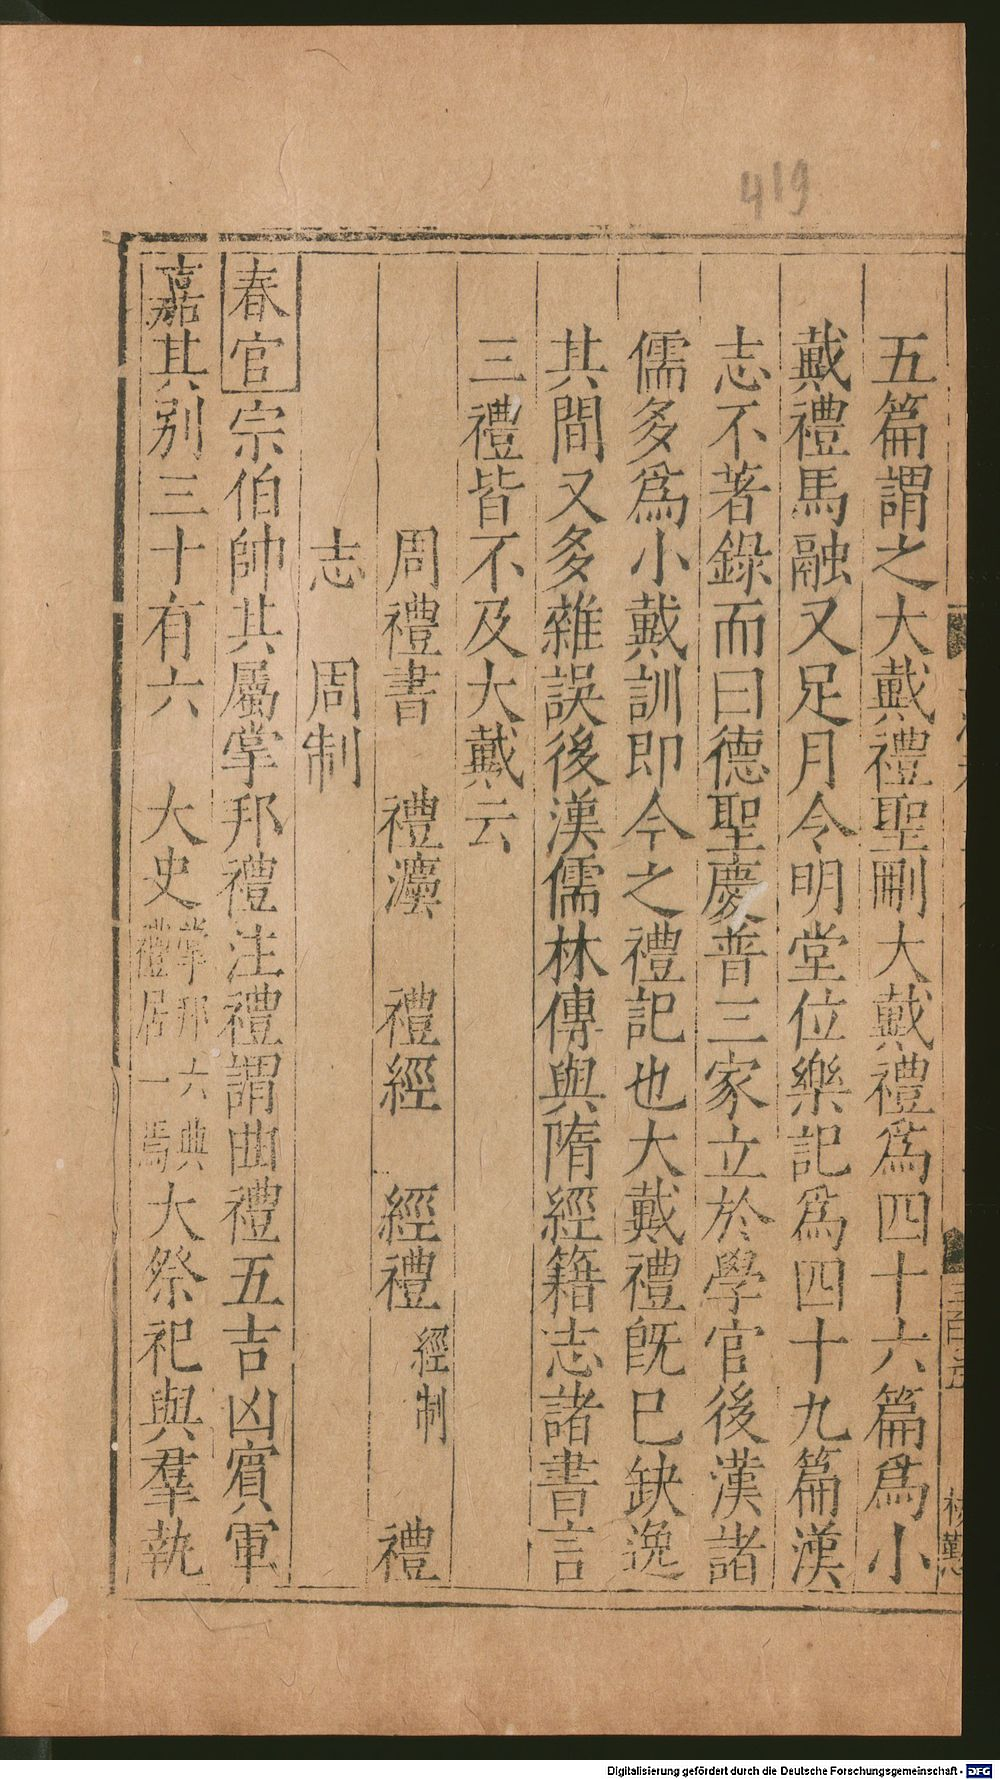 419
五篇謂之大戴禮聖刪大戴禮爲四十六篇爲小
戴禮馬融又足月令明堂位樂記爲四十九篇漢
志不著錄而曰德聖慶普三家立於學官後漢諸
儒多爲小戴訓即今之禮記也大戴禮旣已缺逸
其間又多雜誤後漢儒林傳與隋經籍志諸書言
三禮皆不及大戴云
周禮書 禮灋 禮經 經禮 經制 禮
志 周制
春官宗伯帥其屬掌邦禮注禮謂曲禮五吉凶賓軍
嘉其別三十有六 大史掌邦六典禮居一焉大祭祀與羣執
Digitalisierung gefördert durch die Deutsche Forschungsgemeinschaft - DFG